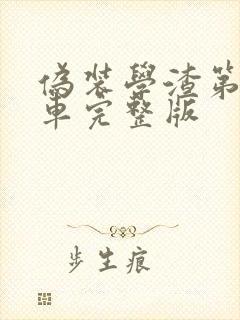 偽裝學渣第
車完整版
步生痕